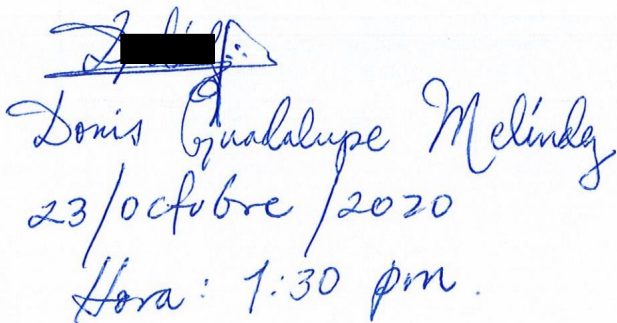 Donis Guadalupe Melindez
23/octubre/2020
Hora: 1:30 pm.